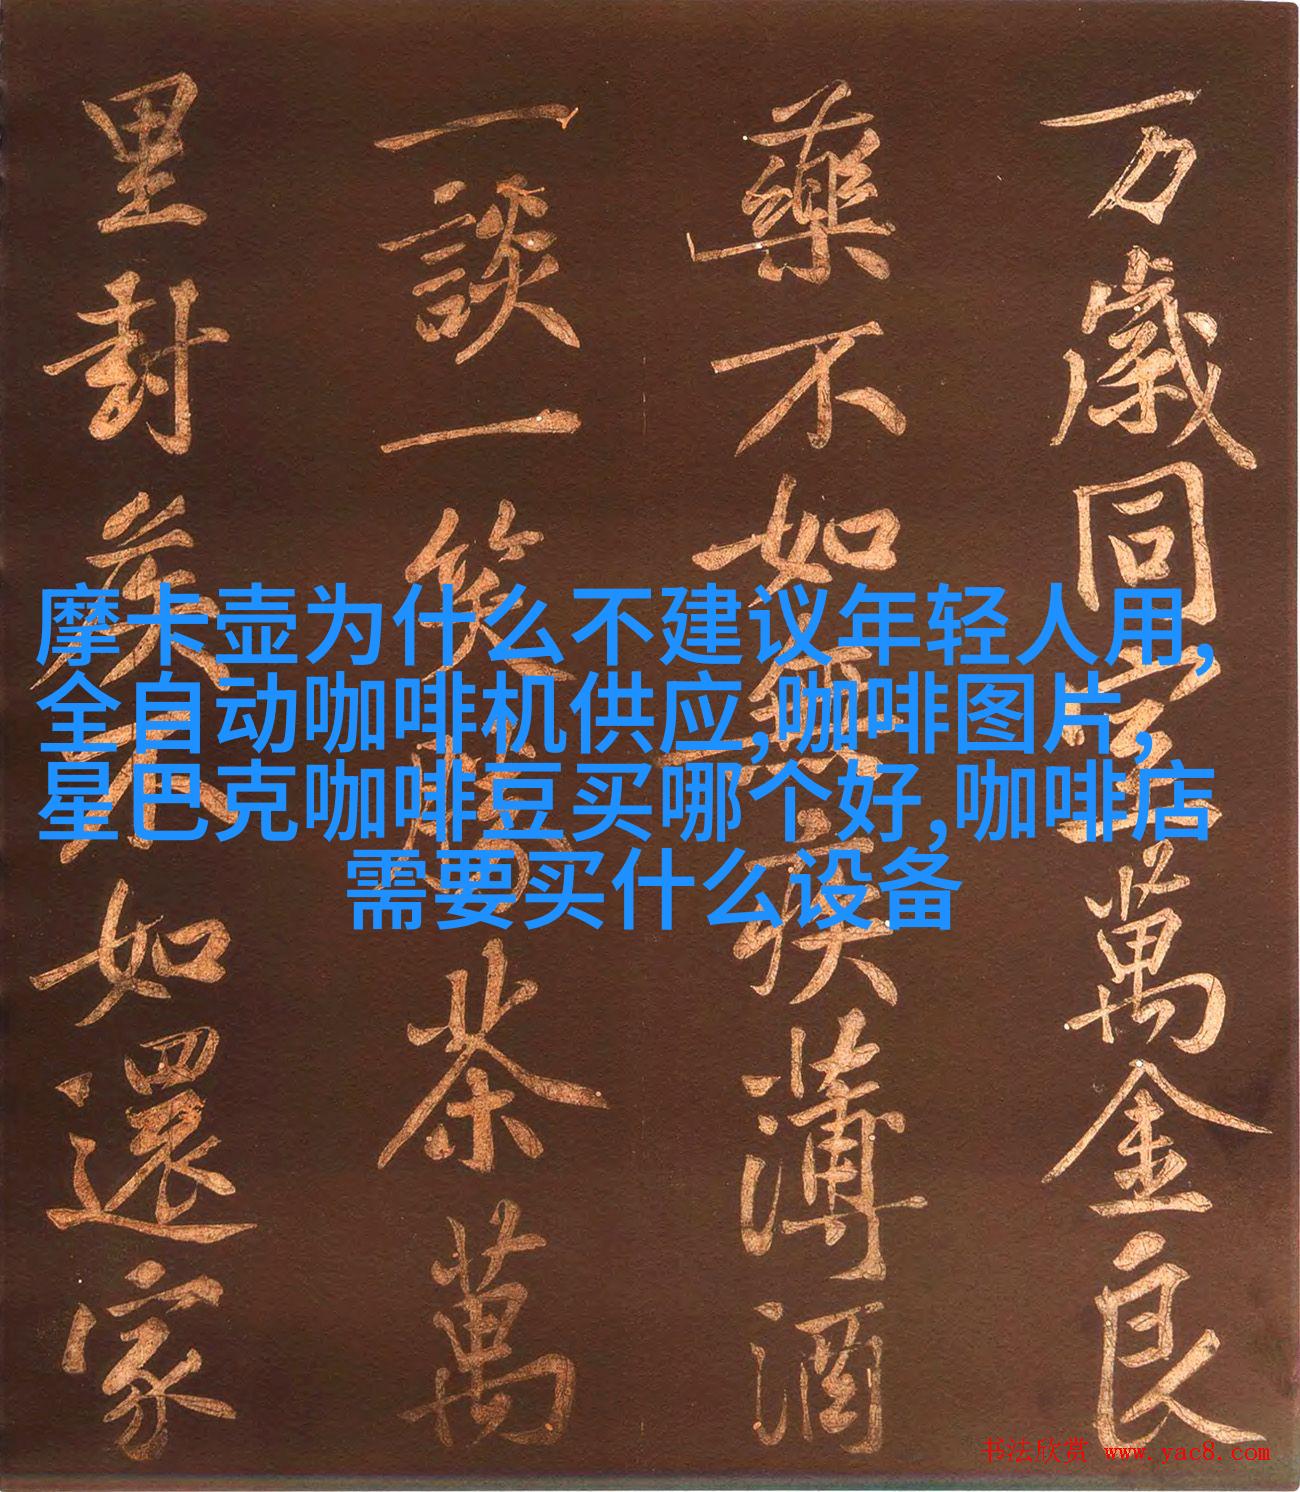 摩卡壶为什么不建议年轻人用,
全自动咖啡机供应,咖啡图片,
星巴克咖啡豆买哪个好,咖啡店
需要买什么设备
万歲同萬金良
藥不如無疾薄酒
一談一笑勝茶萬
里封矦不如還家
书法欣赏 www.yac8.com